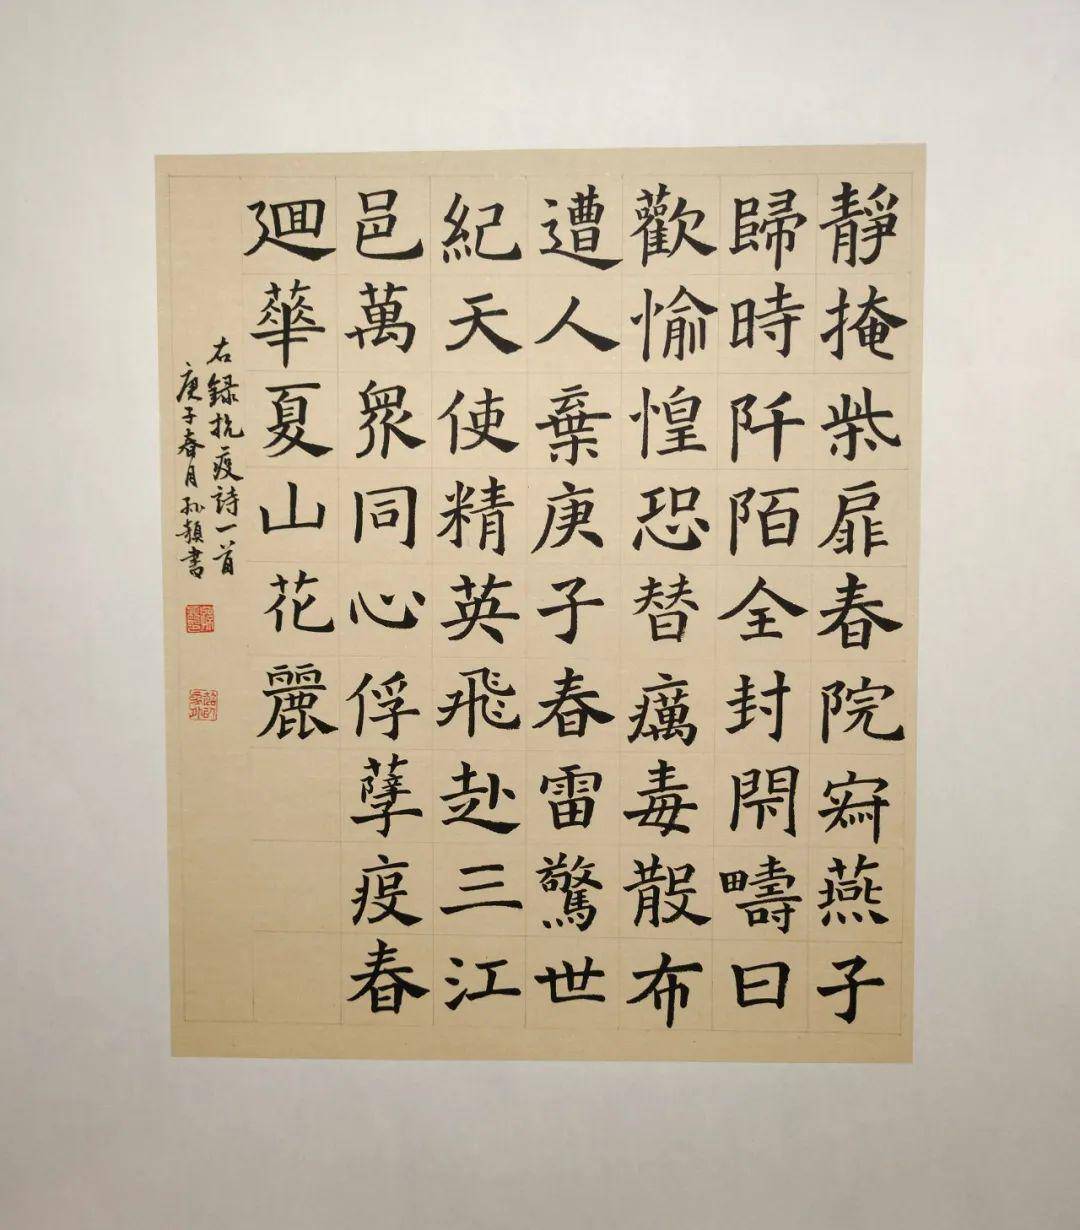 靜掩柴扉春院寂燕子
歸時阡陌全封閉疇曰
歡愉惶恐替癘毒散布
遭人棄庚子春雷驚世
紀天使精英飛赴三江
邑萬眾同心俘孽疫春
迴華夏山花麗
右錄抗疫詩一首
庚子春月孫頛書